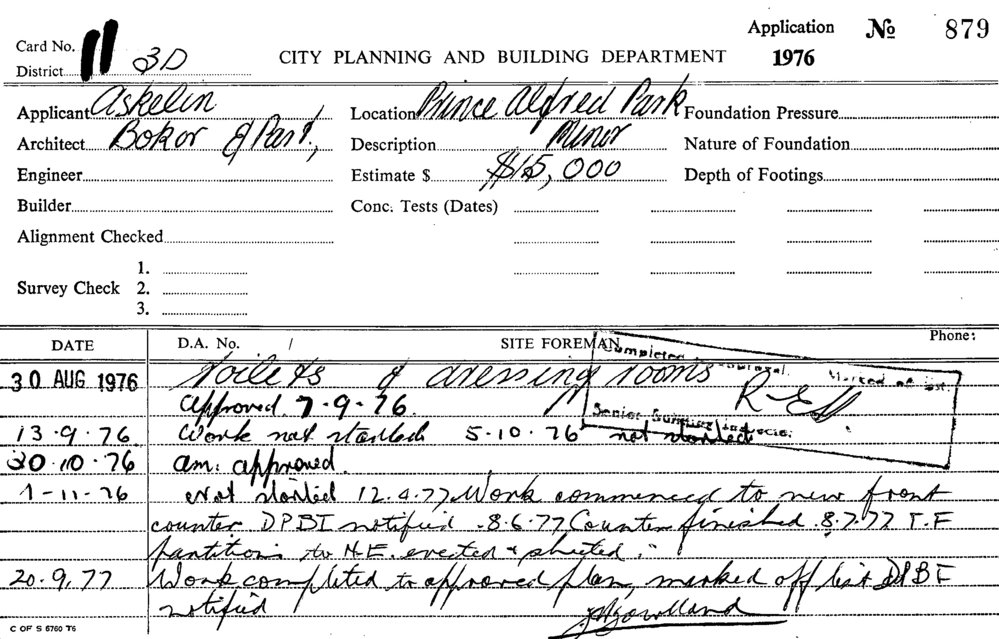 Application № 879
Card No. 11
District 3D
CITY PLANNING AND BUILDING DEPARTMENT 1976
Applicant Askelin
Location Prince Alfred Park
Foundation Pressure
Architect Bokor & Part.,
Description Minor
Nature of Foundation
Engineer
Estimate $ $15,000
Depth of Footings
Builder
Conc. Tests (Dates)
Alignment Checked
Survey Check
1.
2.
3.
DATE
D.A. No. /
SITE FOREMAN
Phone:
30 AUG 1976 Toilets & dressing rooms
Approved 7-9-76
Completed
Marked off list.
Senior Building
13-9-76 Work not started 5-10-76 not started
20-10-76 am. approved.
1-11-76 Not started 12.4.77 Work commenced to new front
counter DPBI notified. 8.6.77 Counter finished. 8.7.77 T.F
partitions to N.E. erected & sheeted.
20.9.77 Work completed to approved plan, marked off list DPBI
notified
C OF S 6760 T6